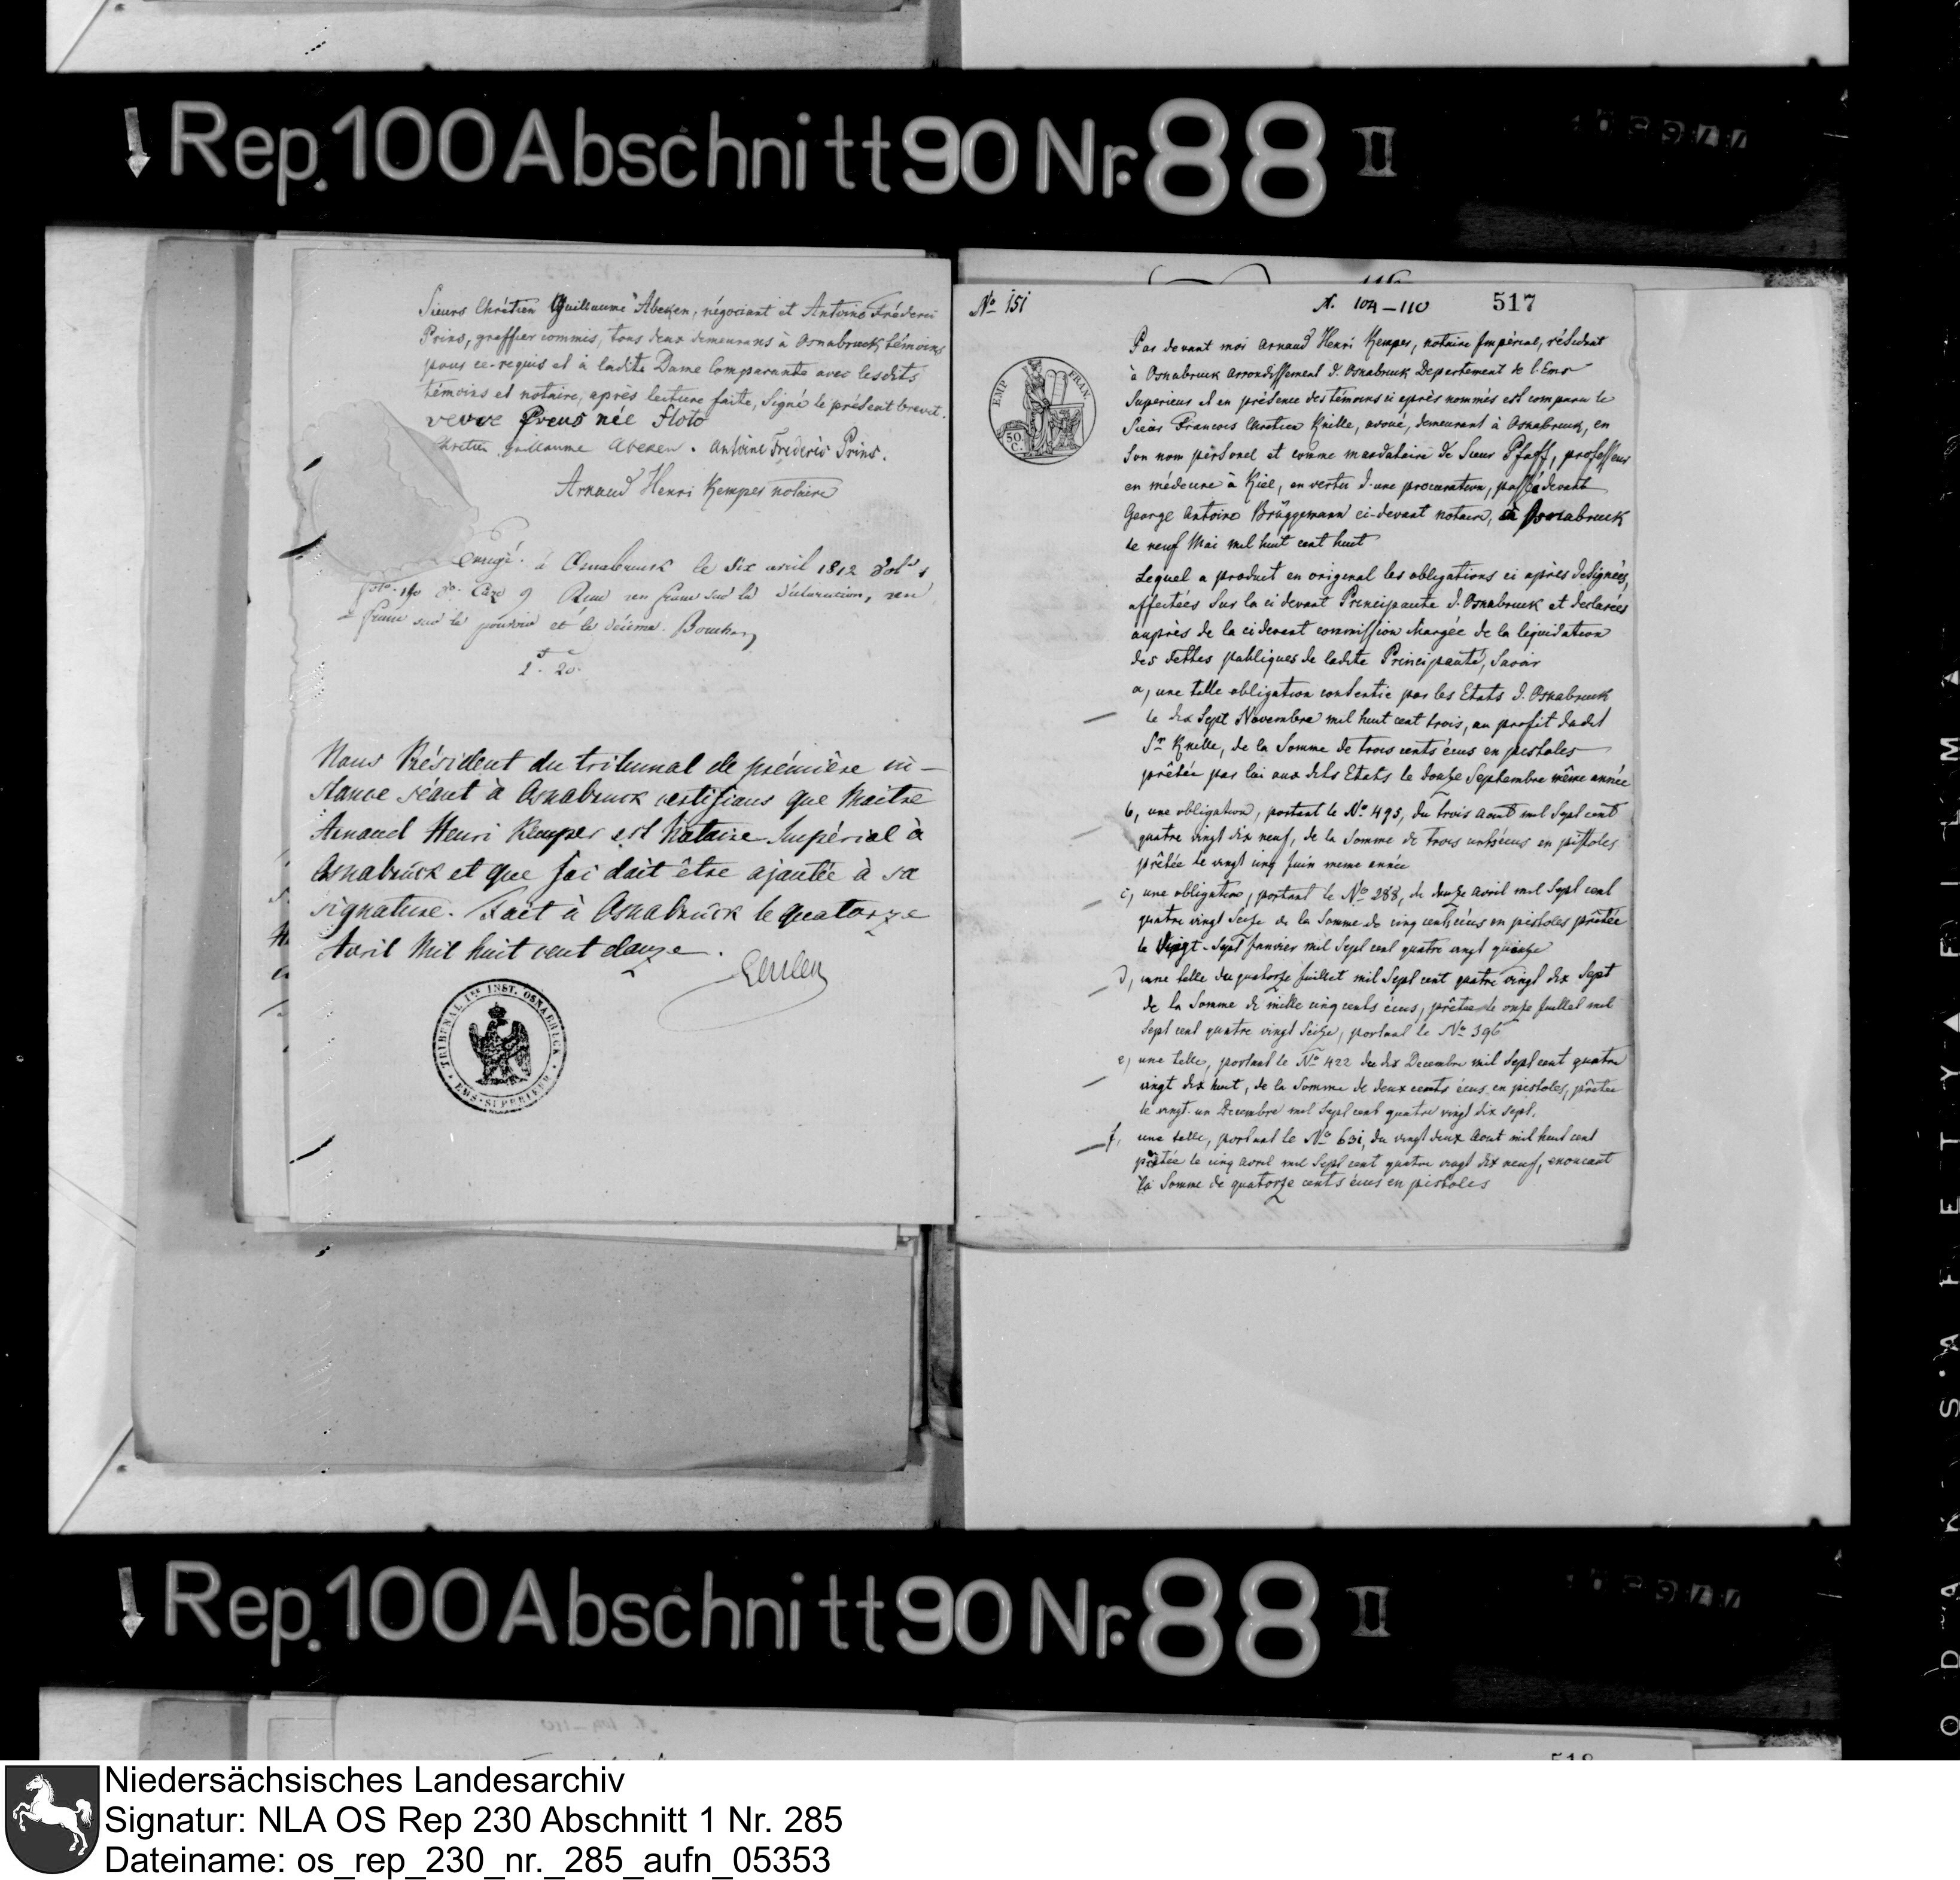 Rep. 100 Abschnitt 90 Nr. 88 II
Sieurs Chrétien Guillaume Abeken, négociant et Antoine Fréderic
Prins, greffier commis, tous deux demeurans à Osnabruck témoins
pour ce requis et à ladite Dame Comparante avec lesdits
témoins et notaire, après lecture faite, Signé le présent brevet.
veuve Preus née Floto
Chretien guillaume Abeken. Antoine Frederic Prins.
Arnaud Henri Kemper notaire
Enregé. à Osnabruck le dix avril 1812 Vol. 1
folio 190 Case 9 Reçu un franc sur la déclaration, un
franc sur le pouvoir et le décime.
2 f. 20 c.
Nous Président du tribunal de première in-
stance séant à Osnabruck certifions que Maitre
Arnaud Henri Kemper est Notaire Impérial à
Osnabrück et que foi doit être ajoutée à sa
signature. Fait à Osnabrück le quatorze
Avril Mil huit cent douze.
TRIBUNAL Ire INST. OSNABRUCK
EMS-SUPERIEUR
No 151
N. 104-110
517
EMP FRAN.
50 C.
Par devant moi Arnaud Henri Kemper, notaire Impérial, résidant
à Osnabruck Arrondissement d'Osnabruck Departement de l'Ems
Superieur et en présence des témoins ci après nommés est comparu le
Sieur Francois Chretien Knille, avoué, demeurant à Osnabruck, en
Son nom personel et comme mandataire de Sieur Pfaff, professeur
en médecine à Kiel, en vertu d'une procuration, passée devant
George Antoine Brüggemann ci-devant notaire, à Osnabruck
le neuf Mai mil huit cent huit
Lequel a produit en original les obligations ci après designées,
affectées sur la ci devant Principauté d'Osnabruck et declarées
auprès de la ci devant commission chargée de la liquidation
des dettes publiques de ladite Principauté, Savoir
a, une telle obligation consentie par les Etats d'Osnabruck
le dix Sept Novembre mil huit cent trois, au profit dudit
Sr Knille, de la Somme de trois cents écus en pistoles
prêtée par lui aux dits Etats le douze Septembre même année
b, une obligation, portant le No 495, du trois Aout mil Sept cent
quatre vingt dix neuf, de la Somme de trois cents écus en pistoles
prêtée le vingt cinq Juin meme année
c, une obligation, portant le No 288, du douze avril mil Sept cent
quatre vingt Seize de la Somme de cinq cents écus en pistoles prêtée
le Vingt-Sept Janvier mil Sept cent quatre vingt quinze
d, une telle du quatorze Juillet mil Sept cent quatre vingt dix Sept
de la Somme de mille cinq cents écus, prêtée le onze Juillet mil
Sept cent quatre vingt Seize, portant le No 396
e, une telle, portant le No 422 du dix Decembre mil Sept cent quatre
vingt dix huit, de la Somme de deux cents écus en pistoles, prêtée
le vingt-un Decembre mil Sept cent quatre vingt dix sept.
f, une telle, portant le No 631, du vingt deux Aout mil huit cent
prêtée le cinq Avril mil Sept cent quatre vingt dix neuf, enoncant
la Somme de quatorze cents écus en pistoles
Rep. 100 Abschnitt 90 Nr. 88 II
Niedersächsisches Landesarchiv
Signatur: NLA OS Rep 230 Abschnitt 1 Nr. 285
Dateiname: os_rep_230_nr._285_aufn_05353